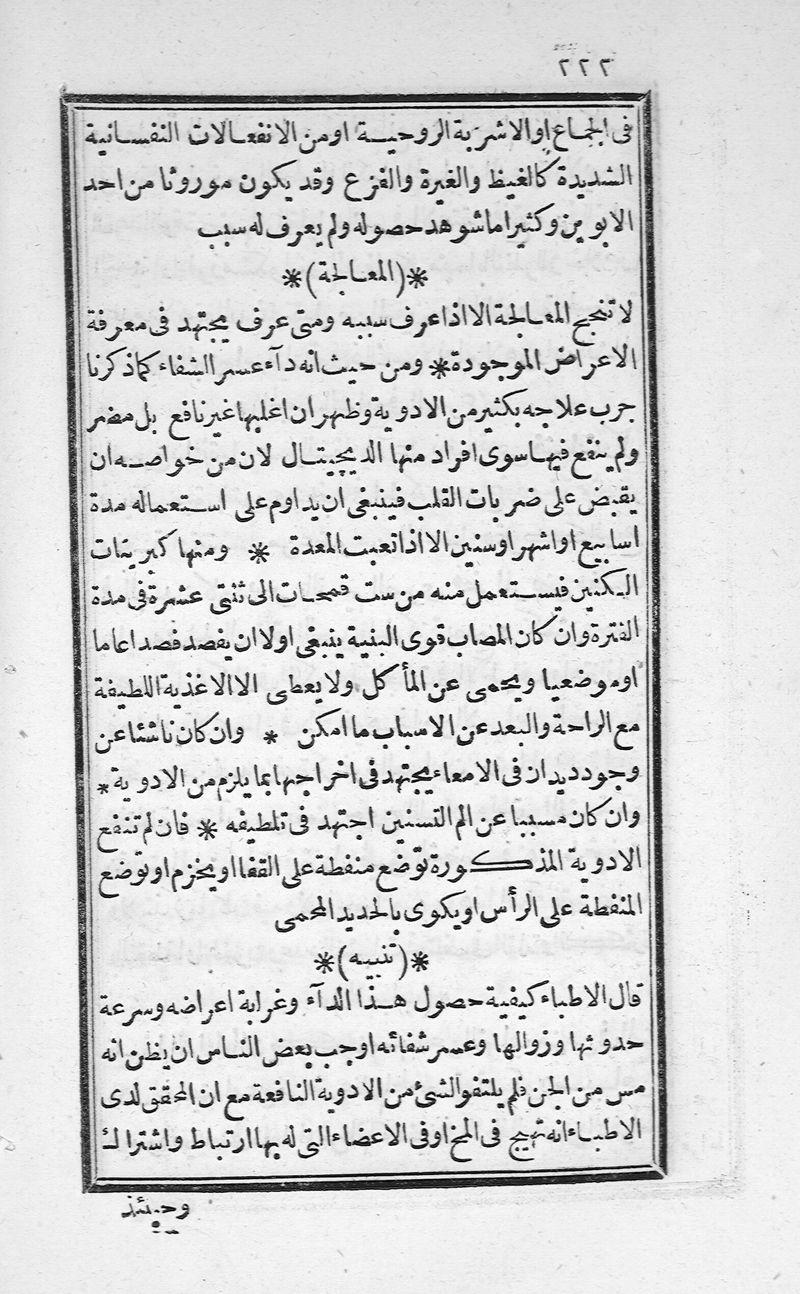 ٢٢٢
فى الجماع او الاشربة الروحيــة اومن الانفعالات النفسانية
الشديدة كالغيظ والغيرة والفزع وقد يكون موروثا من احد
الابوين وكثيرا ما شوهد حصوله ولم يعرف له سبب
*(المعالجة)*
لا تنجح المعالجة الا اذا عرف سببه ومتى عرف يجتهد فى معرفة
الاعراض الموجودة * ومن حيث انه دآء عسر الشفاء كما ذكرنا
جرب علاجه بكثير من الادوية وظهر ان اغلبها غير نافع بل مضر
ولم ينفع فيها سوى افراد منها الديچيتال لان من خواصه ان
يقبض على ضربات القلب فينبغى ان يداوم على استعماله مدة
اسابيع او اشهر او سنين الا اذا تعبت المعدة * ومنها كبريتات
الكنين فيستعمل منه من ست قمحات الى ثنتى عشرة فى مدة
الفترة وان كان المصاب قوى البنية ينبغى اولا ان يفصد فصدا عاما
او موضعيا ويحمى عن المأكل ولا يعطى الا الاغذية اللطيفة
مع الراحة والبعد عن الاسباب ما امكن * وان كان ناشئا عن
وجود ديدان فى الامعاء يجتهد فى اخراجها بما يلزم من الادوية *
وان كان مسببا عن الم التسنين اجتهد فى تلطيفه * فان لم تنفع
الادوية المذكورة توضع منفطة على القفا او يخزم او توضع
المنفطة على الرأس او يكوى بالحديد المحمى
*(تنبيه)*
قال الاطباء كيفية حصول هذا الدآء وغرابة اعراضه وسرعة
حدوثها وزوالها وعسر شفائه اوجب بعض الناس ان يظن انه
مس من الجن فلم يلتفوا لشئ من الادوية النافعة مع ان المحقق لدى
الاطباء انه تهيج فى المخ او فى الاعضاء التى له بها ارتباط واشتراك
وحينئذ